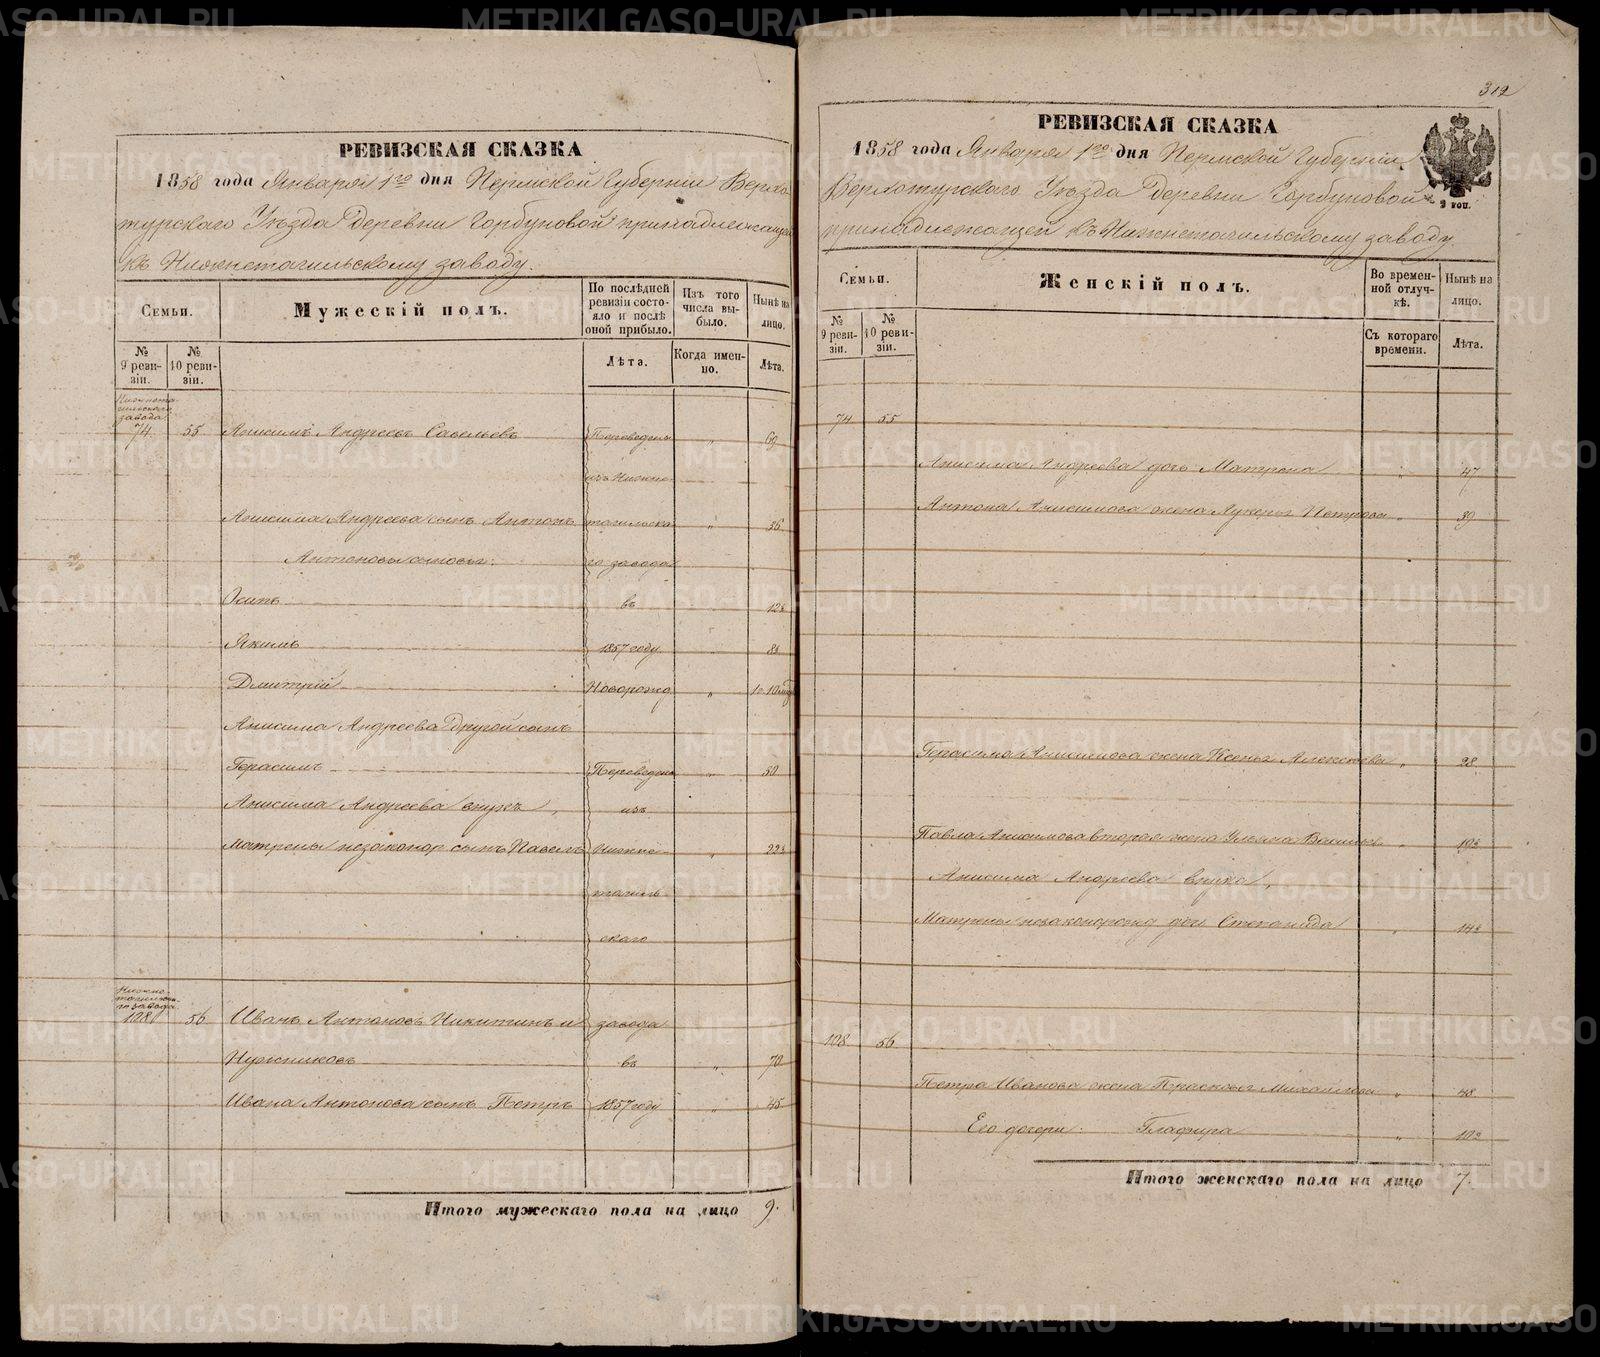 РЕВИЗСКАЯ СКАЗКА
1858 года Января 1го дня Пермской Губерніи Верхо
турскаго Уѣзда Деревни Горбуновой принадлежащей
къ Нижнетагильскому заводу.
Семьи.
Мужескій полъ.
По послѣдней ревизіи состояло и послѣ оной прибыло.
Изъ того числа выбыло.
Нынѣ на лицо.
№ 9 ревизіи.
№ 10 ревизіи.
Лѣта.
Когда именно.
Лѣта.
Нижнета-
гильскаго
завода
74 55 Анисимъ Андреевъ Савельевъ Переведены " 69
изъ Нижне-
Анисима Андреева сынъ Антонъ тагильска " 36
Антоновы сыновья: го завода
Осипъ въ 12½
Якимъ 1857 году 8½
Дмитрій Новорожд "
Анисима Андреева Другой сынъ
Герасимъ Переведены " 30
Анисима Андреева внукъ, изъ
Матрены незаконор сынъ Павелъ Нижне- " 22½
тагиль
скаго
Нижне-
тагильска-
го завода
108 56 Иванъ Антоновъ Никитинъ и завода
въ " 70
Ивана Антонова сынъ Петръ 1857 году " 45
Итого мужескаго пола на лицо 9.
312
РЕВИЗСКАЯ СКАЗКА
1858 года Января 1го дня Пермской Губерніи
Верхотурскаго Уѣзда Деревни Горбуновой
принадлежащей къ Нижнетагильскому заводу.
3 коп.
Семьи.
Женскій полъ.
Во временной отлучкѣ.
Нынѣ на лицо.
№ 9 ревизіи.
№ 10 ревизіи.
Съ котораго времени.
Лѣта.
74 55
Анисима Андреева дочь Матрена " 47
Антона Анисимова жена Лукерья Петрова " 39
Герасима Анисимова жена Ксенья Алексеева " 28
Павла Анисимова вторая жена Ульяна " 19½
Анисима Андреева внука,
Матрены незаконорожд дочь Степанида " 14½
108 56
Петра Иванова жена Прасковья Михайлова " 48
Его дочери: Глафира " 10½
Итого женскаго пола на лицо 7.
METRIKI.GASO-URAL.RU